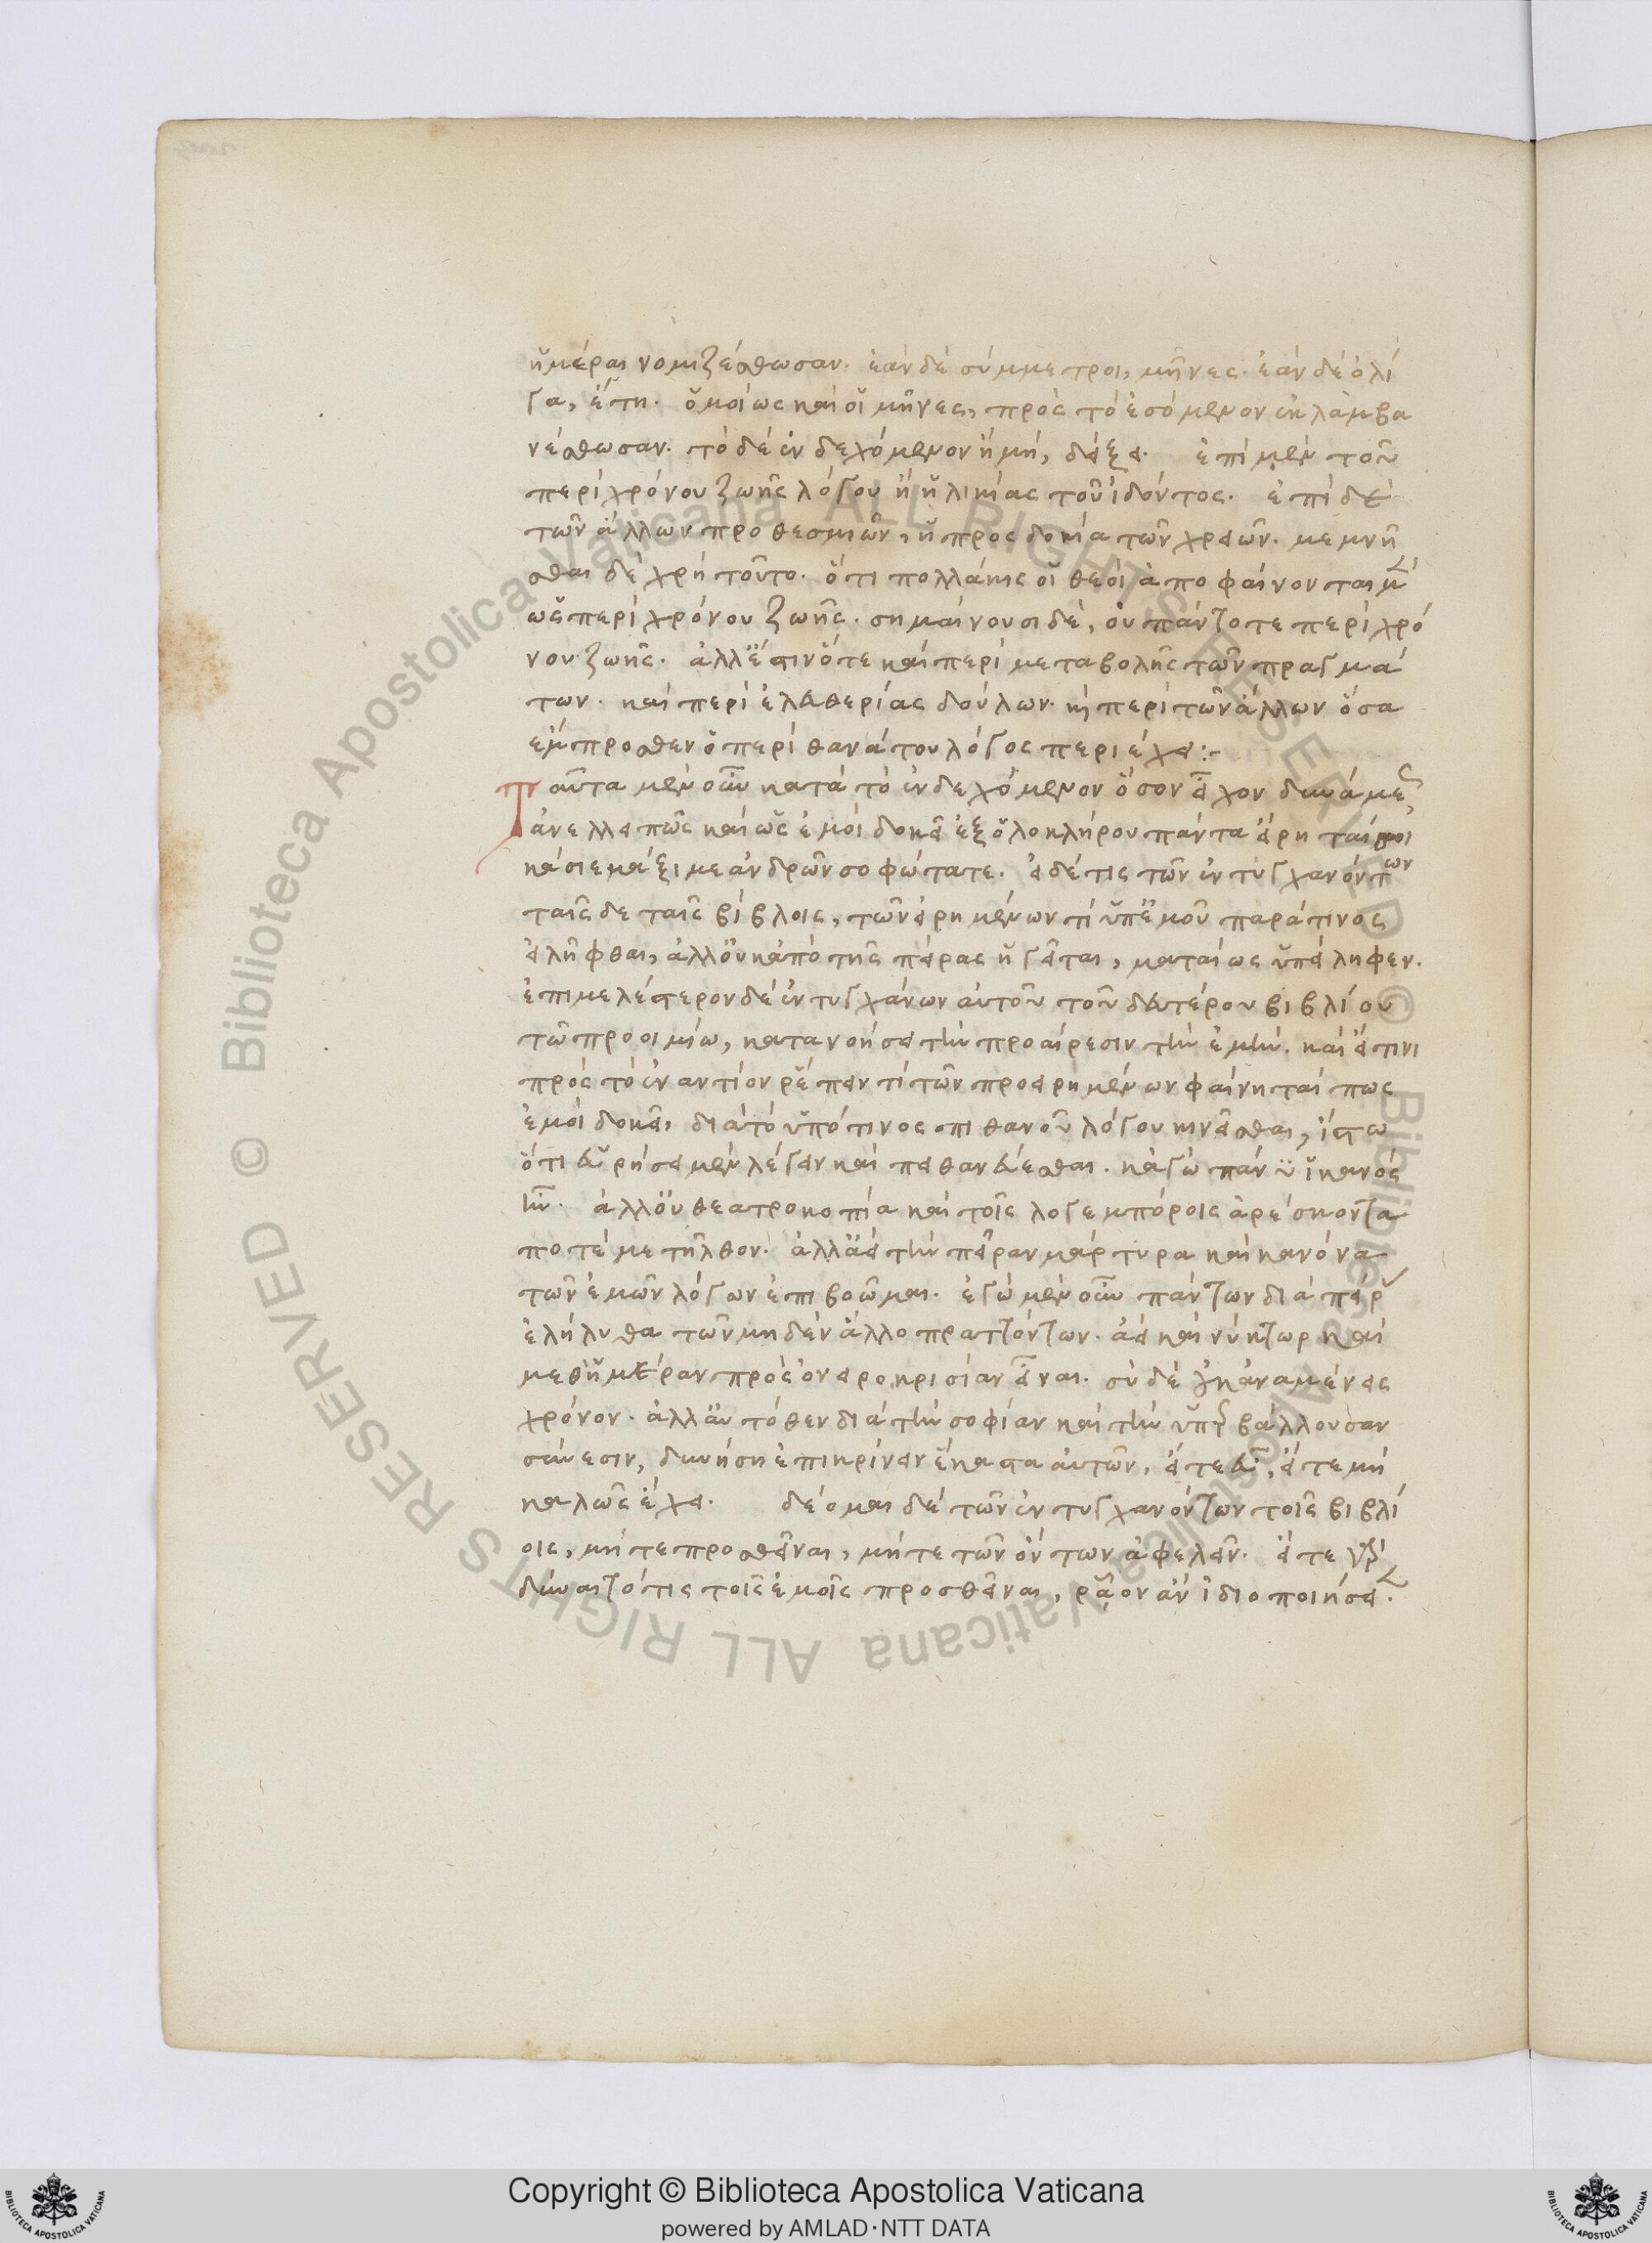 ἡμέραι νομιζέσθωσαν. ἐὰν δὲ σύμμετροι, μῆνες. ἐὰν δὲ ὀλί
γα, ἔτη. ὁμοίως καὶ οἱ μῆνες, πρὸς τὸ ἐσόμενον ἐκλαμβα
νέσθωσαν. τὸ δὲ ἐνδεχόμενον ἢ μή, δείξει. ἐπὶ μὲν τοῦ
περὶ χρόνου ζωῆς λόγου ἡ ἡλικίας τοῦ ἰδόντος. ἐπὶ δὲ
τῶν ἄλλων προθεσμιῶν, ἡ προσδοκία τῶν χρειῶν. μεμνῆ
σθαι δὲ χρὴ τοῦτο. ὅτι πολλάκις οἱ θεοὶ ἀποφαίνονται μ
ὡς περὶ χρόνου ζωῆς. σημαίνουσι δὲ, οὐ πάντοτε περὶ χρό
νου ζωῆς. ἀλλ' ἔστιν ὅτε καὶ περὶ μεταβολῆς τῶν πραγμά
των. καὶ περὶ ἐλευθερίας δούλων. κὶ περὶ τῶν ἄλλων ὅσα
ἔμπροσθεν ὁ περὶ θανάτου λόγος περιέχει:-
Ταῦτα μὲν οὖν κατὰ τὸ ἐνδεχόμενον ὅσον εἶχον δυνάμε
ἀνελλειπῶς καὶ ὡς ἐμοὶ δοκεῖ ἐξ ὁλοκλήρου πάντα εἴρηταί μοι
κάσιε μάξιμε ἀνδρῶν σοφώτατε. εἰ δέ τις τῶν ἐντυγχανόντων
ταῖς δε ταῖς βίβλοις, τῶν εἰρημένων τί ὑπ' ἐμοῦ παρά τινος
εἰλῆφθαι, ἀλλ' οὐκ ἀπὸ τῆς πείρας ἡγεῖται, ματαίως ὑπείληφεν.
ἐπιμελέστερον δὲ ἐντυγχάνων αὐτοῦ τοῦ δευτέρου βιβλίου
τῶ προοιμίω, κατανοήσει τὴν προαίρεσιν τὴν ἐμήν. καὶ εἴ τινι
πρὸς τὸ ἐναντίον ῥέπειν τί τῶν προειρημένων φαίνηταί πως
ἐμοὶ δοκεῖ, διὰ τὸ ὑπό τινος πιθανοῦ λόγου κινεῖσθαι, ἴστω
ὅτι εὑρησιμὲν λέγειν καὶ πειθανεύεσθαι. κἀγὼ πάνυ ἱκανός
ἦν. ἀλλ' οὐ θεατροκοπία καὶ τοῖς λογεμπόροις ἀρέσκοντα
ποτέ μετῆλθον. ἀλλ' ἀεὶ τὴν πεῖραν μάρτυρα καὶ κανόνα
τῶν ἐμῶν λόγων ἐπιβοῶμαι. ἐγὼ μὲν οὖν πάντων διὰ πείρ
ἐλήλυθα τῶ μηδὲν ἄλλο πραττόντων. ἀεὶ καὶ νύκτωρ καὶ
μεθ' ἡμέραν πρὸς ὀνειροκρισίαν εἶναι. σὺ δὲ οὐκ ἀναμένεις
χρόνον. ἀλλ' αὐτόθεν διὰ τὴν σοφίαν καὶ τὴν ὑπερβάλλουσαν
σύνεσιν, δυνήσῃ ἐπικρίνειν ἕκαστα αὐτῶν, εἴτε εὖ, εἴτε μὴ
καλῶς ἔχει. δέομαι δὲ τῶν ἐντυγχανόντων τοῖς βιβλί
οις, μήτε προσθεῖναι, μήτε τῶν ὄντων ἀφελεῖν. εἴτε γὰρ
δύναιτό τις τοῖς ἐμοῖς προσθεῖναι, ῥᾷον ἂν ἰδιοποιήσει.
Copyright © Biblioteca Apostolica Vaticana
powered by AMLAD·NTT DATA
© Biblioteca Apostolica Vaticana ALL RIGHTS RESERVED
© Biblioteca Apostolica Vaticana ALL RIGHTS RESERVED
BIBLIOTECA APOSTOLICA VATICANA
BIBLIOTECA APOSTOLICA VATICANA